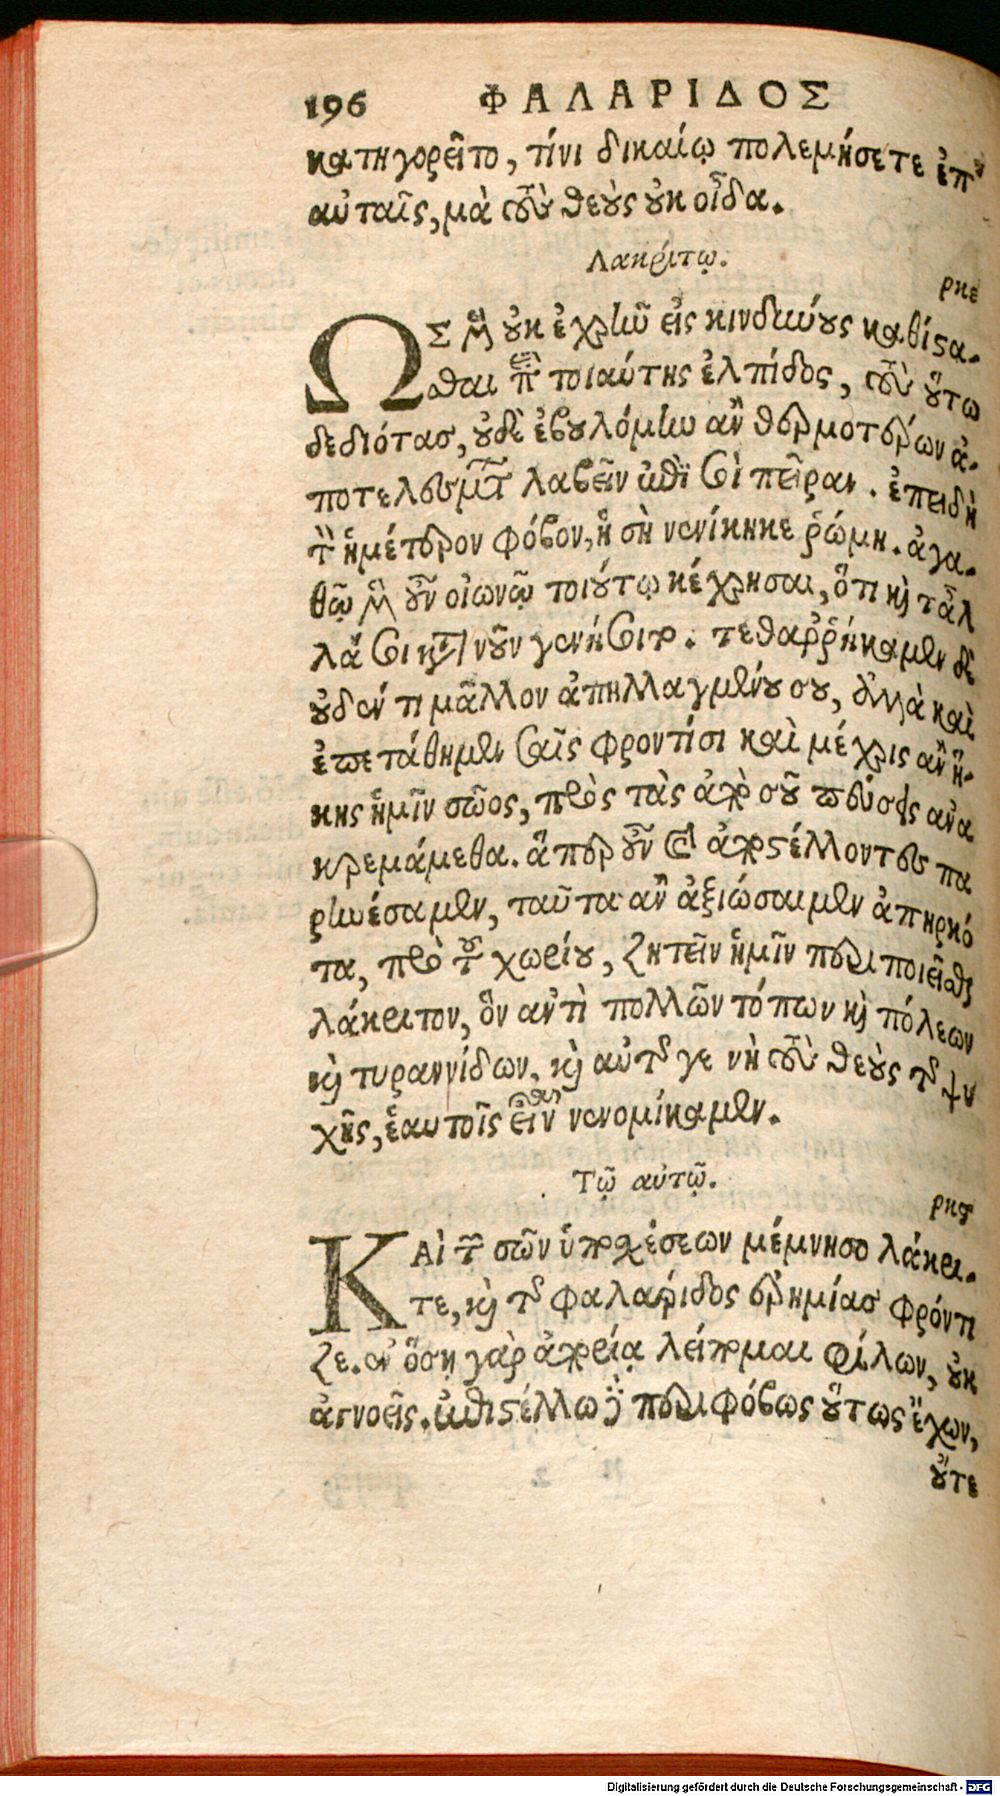 196 ΦΑΛΑΡΙΔΟΣ
κατηγορεῖτο, τίνι δικαίῳ πολεμήσετε ἐπ'
αὐταῖς, μὰ τοὺς θεοὺς οὐκ οἶδα.
Λακρίτῳ.
ρκε
ΩΣ μὲν οὐκ ἐχρῆν εἰς κινδύνους καθίστα-
σθαι ἐπὶ τοιαύτης ἐλπίδος, τοὺς οὕτω
δεδιότας, οὐδὲ ἐβουλόμην ἂν θερμοτέρων ἀ-
ποτελεσμάτων λαβεῖν ἐπί σοι πεῖραν. ἐπειδὴ
τὸν ἡμέτερον φόβον, ἡ σὴ νενίκηκε ῥώμη. ἀγα-
θῷ μὲν οὖν οἰωνῷ τοιούτῳ κέχρησαι, ὅτι καὶ τἆλ
λά σοι κατὰ νοῦν γενήσεται. τεθαρρήκαμεν δὲ
οὐδέν τι μᾶλλον ἀπηλλαγμένου σου, ἀλλὰ καὶ
ἐπετάθημεν ταῖς φροντίσι καὶ μέχρις ἂν ἥ-
κης ἡμῖν σῶος, πρὸς τὰς ἀπὸ σοῦ πεύσεις ἀνα
κρεμάμεθα. ἅπερ οὖν σοι ἀποστέλλοντες πα
ρῃνέσαμεν, ταῦτα ἂν ἀξιώσαιμεν ἀπηρκό
τα, πρὸ τοῦ χωρίου, ζητεῖν ἡμῖν περιποιεῖσθαι
λάκριτον, ὃν ἀντὶ πολλῶν τόπων καὶ πόλεων
καὶ τυραννίδων, καὶ αὐτῆς γε νὴ τοὺς θεοὺς τῆς ψυ
χῆς, ἑαυτοῖς εἶναι νενομίκαμεν.
Τῷ αὐτῷ.
ρκϛ
ΚΑΙ τῶν σῶν ὑποσχέσεων μέμνησο λάκρι-
τε, καὶ τῆς Φαλάριδος ἐρημίας φρόντι
ζε. ἐν ὅσῃ γὰρ ἀπορίᾳ λείπομαι φίλων, οὐκ
ἀγνοεῖς. ἐπιστέλλω γὰρ περιφόβως οὕτως ἔχων,
οὔτε
Digitalisierung gefördert durch die Deutsche Forschungsgemeinschaft - DFG